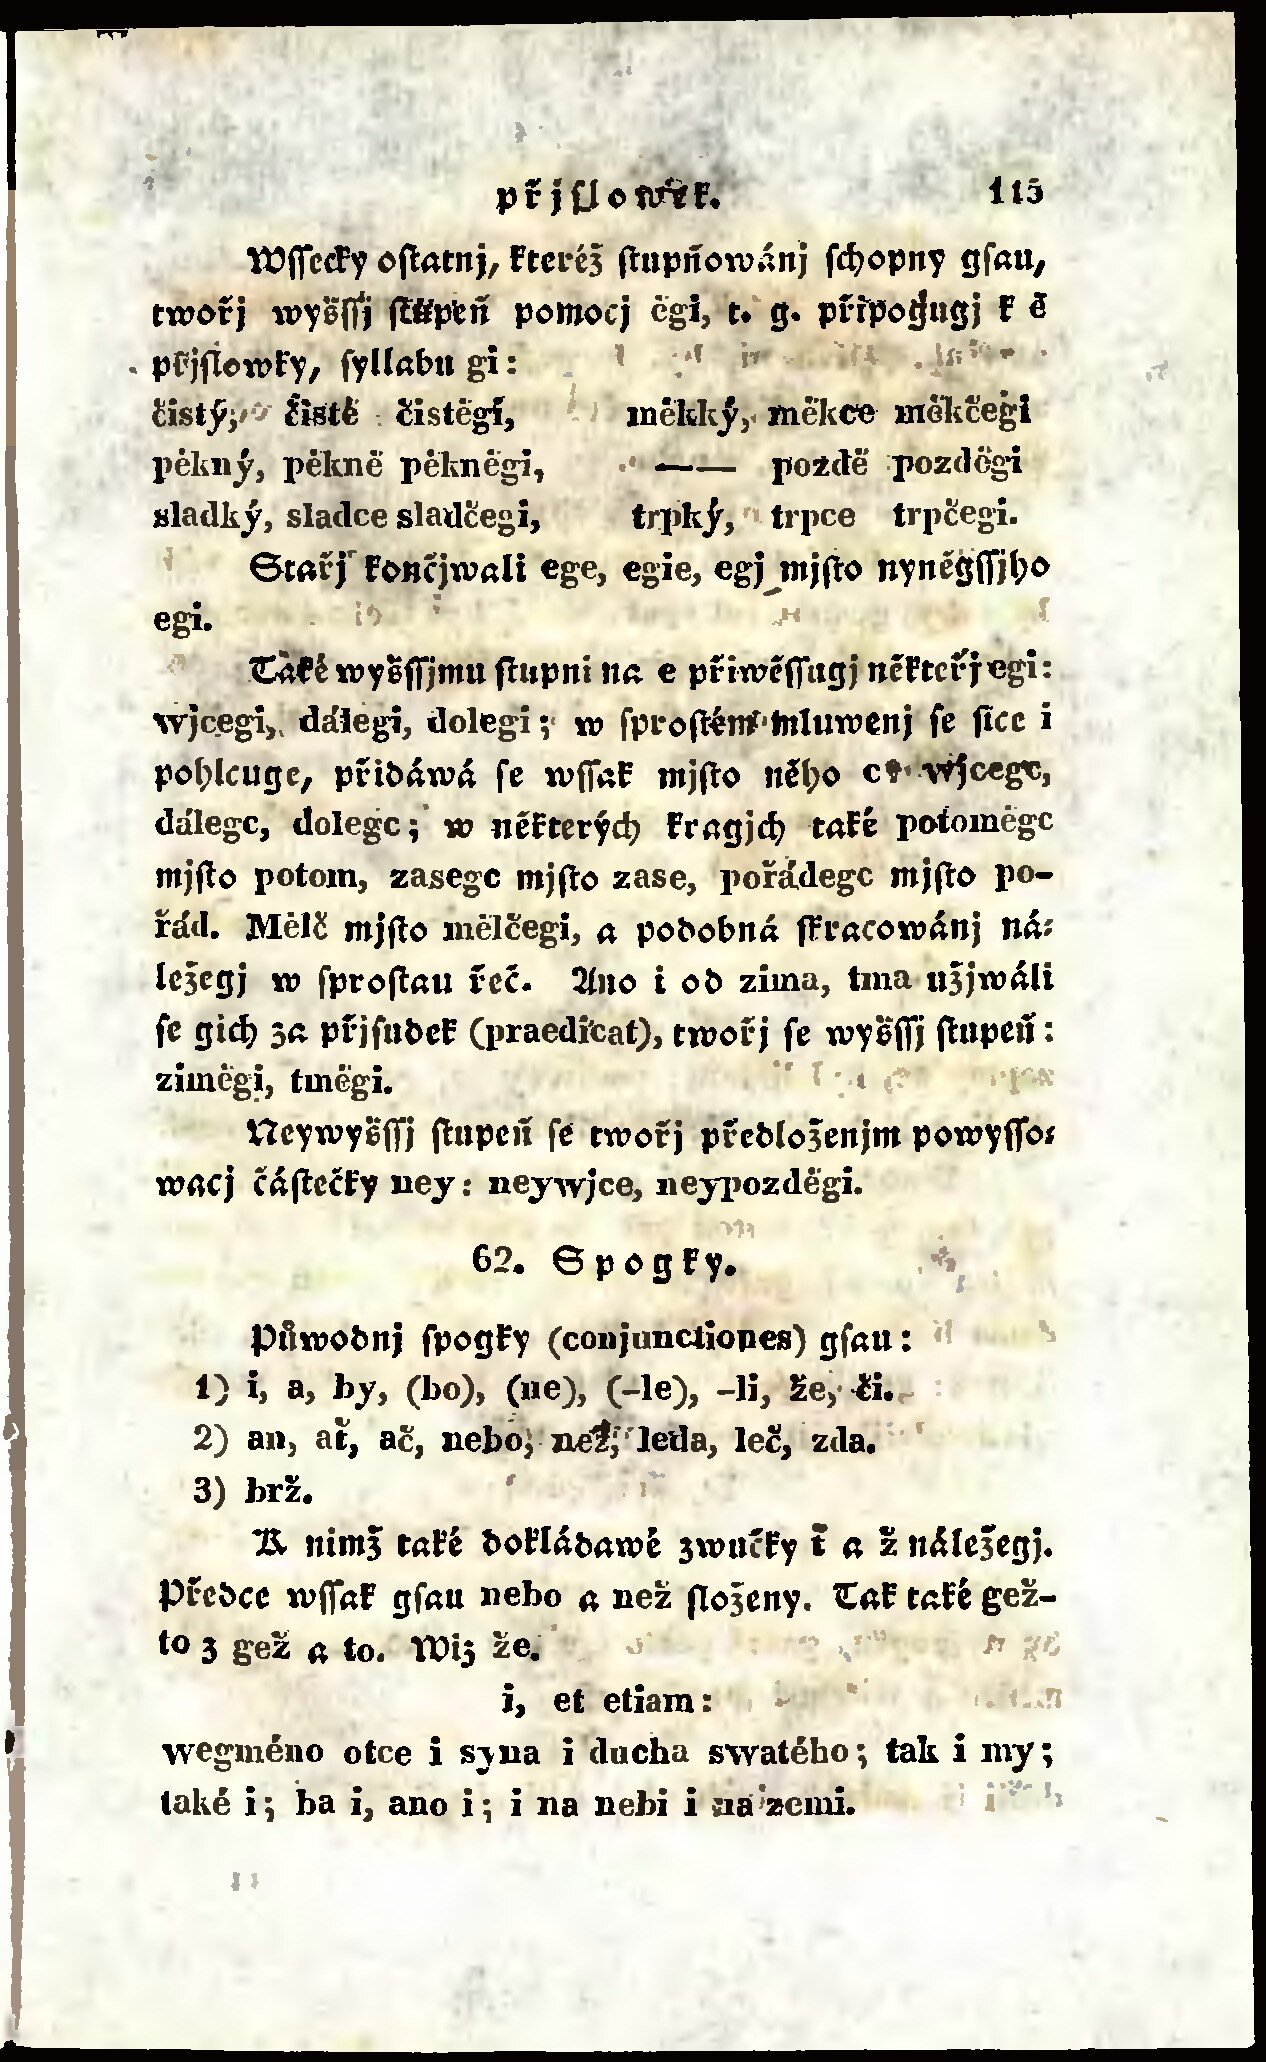 přjslowek. 115
Wssecky ostatnj, kteréž stupňowánj schopny gsau,
twořj wyšssj stupeň pomocj ěgi, t. g. připogugj k ě
přjslowky, syllabu gi:
čistý, čistě čistěgi, měkký, měkce měkčegi
pěkný, pěkně pěkněgi, —— pozdě pozděgi
sladký, sladce sladčegi, trpký, trpce trpčegi.
Stařj končjwali ege, egie, egj mjsto nyněgssjho
egi.
Také wyšssjmu stupni na e přiwěssugj někteřj egi:
wjcegi, dálegi, dolegi; w sprostém mluwenj se sice i
pohlcuge, přidáwá se wssak mjsto něho c: wjcegc,
dálegc, dolegc; w některých kragjch také potoměgc
mjsto potom, zasegc mjsto zase, pořádegc mjsto po-
řád. Mělč mjsto mělčegi, a podobná skracowánj ná-
ležegj w sprostau řeč. Ano i od zima, tma užjwáli
se gich za přjsudek (praedicat), twořj se wyšssj stupeň:
ziměgi, tměgi.
Neywyšssj stupeň se twořj předloženjm powysso-
wacj částečky ney: neywjce, neypozděgi.
62. Spogky.
Půwodnj spogky (conjunctiones) gsau:
1) i, a, by, (bo), (ne), (-le), -li, že, či.
2) an, ať, ač, nebo, než, leda, leč, zda.
3) brž.
K nimž také dokládawé zwučky ť a ž náležegj.
Předce wssak gsau nebo a než složeny. Tak také gež-
to z gež a to. Wiz že.
i, et etiam:
wegméno otce i syna i ducha swatého; tak i my;
také i; ba i, ano i; i na nebi i na zemi.